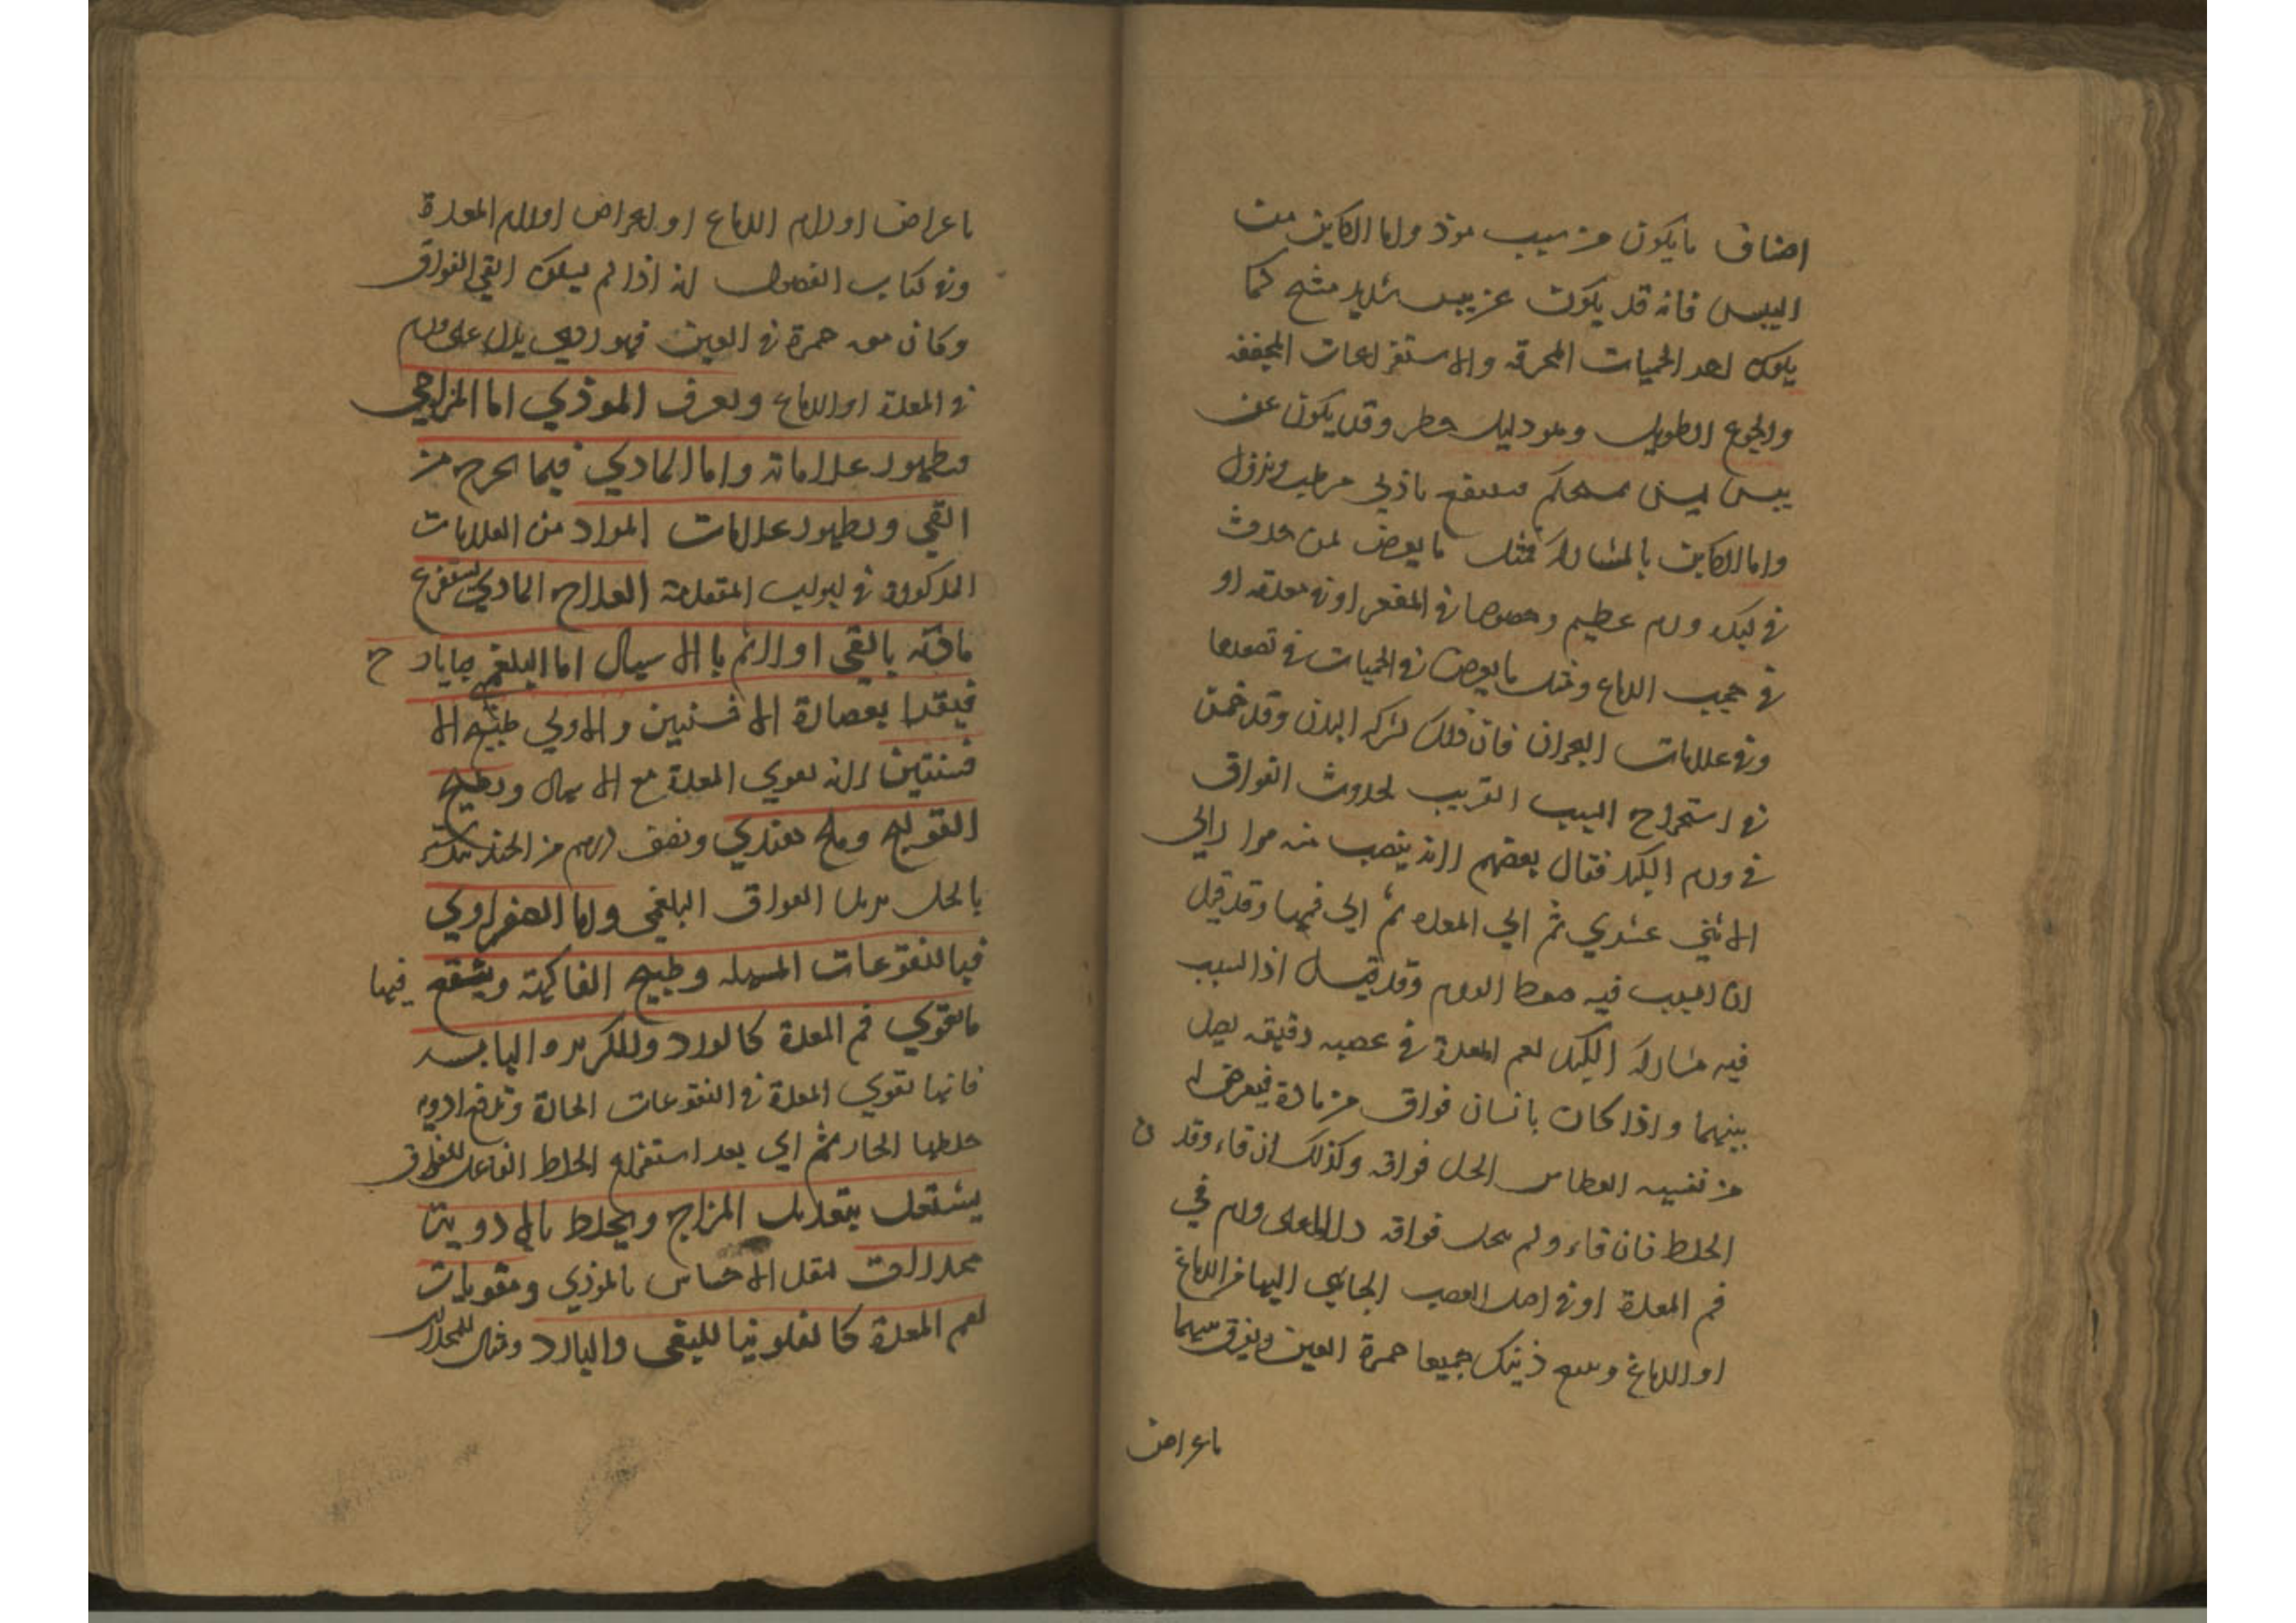 اصناف ما يكون من سبب موذ واما الكاين من
اليبس فانه قد يكون عن يبس شديد مشنج كما
يكون بعد الحميات المحرقه والاستفراغات المجففه
والجوع الطويل وهو دليل خطر وقد يكون عن
يبس ليس بمستحكم فينتفع بادني مرطب ويزول
واما الكاين بالمشاركة فمثل ما يعرض لمن حدث
في كبده ورم عظيم وخصوصا في المقعر او في معدته او
في حجب الدماغ ومثل ما يعرض في الحميات في تصعدها
وفي علامات البحران فان ذلك لشركه البدن وقد خمن
في استخراج السبب القريب لحدوث الفواق
في ورم الكبد فقال بعضهم لانه ينصب منه مرار الي
الاثني عشري ثم الي المعده ثم الي فمها وقد قيل
ان السبب فيه ضغط الورم وقد قيل اذ السبب
فيه مشاركه الكبد لفم المعدة في عصبه دقيقه يصل
بينهما واذا كان بانسان فواق من مادة فيعرض له
من نفسه العطاس انحل فواقه وكذلك ان قاء وقد ن
الخلط فان قاء ولم ينحل فواقه دل اما علي ورم في
فم المعدة او في اصل العصب الجائي اليها من الدماغ
او الدماغ ويتبع ذينك جميعا حمرة العين ويفرق بينهما
باعراض
باعراض اورام الدماغ او اعراض اورام المعدة
وفي كتاب الفصول انه اذا لم يسكن القي الفواق
وكان معه حمرة في العين فهو ردي يدل علي ورم
في المعدة او الدماغ ويعرف الموذي اما المزاجي
فبظهور علاماته واما المادي فبما يخرج من
القي وبظهور علامات المواد من العلامات
المذكورة في ابواب المتقدمة العلاج المادي يستفرغ
مادته بالقي او لا ثم بالاسهال اما البلغمي بايارج
فيقرا بعصارة الافسنتين والاولي طبيخ الا
فسنتين لانه يقوي المعدة مع الاسهال وبطبيخ
القولنج وملح هندي ونصف درهم من الجند بيدستر
بالخل يزيل الفواق البلغمي واما الصفراوي
فبالنقوعات المسهله وطبيخ الفاكهة وينقع فيها
ما يقوي فم المعدة كالورد والكزبره اليابسه
فانها تقوي المعدة في النقوعات الحادة وتدفع اذيه
خلطها الحار ثم اي بعد استفراغ الخلط الفاعل للفواق
يشتغل بتعديل المزاج ويخلط بالادوية
مخدرات لتقل الاحساس بالموذي ومقويات
لفم المعدة كالفلونيا للبلغمي والبارد ومثال للمخدرات